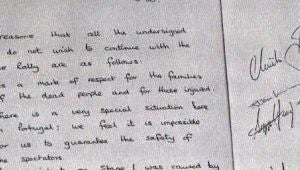 reasons that all the undersigned
do not wish to continue with the
Rally are as follows:
is a mark of respect for the families
of the dead people and for those injured.
here is a very special situation here
Portugal: we feel it is impossible
or us to guarantee the safety of
the spectators.
on Stage 1 was caused by